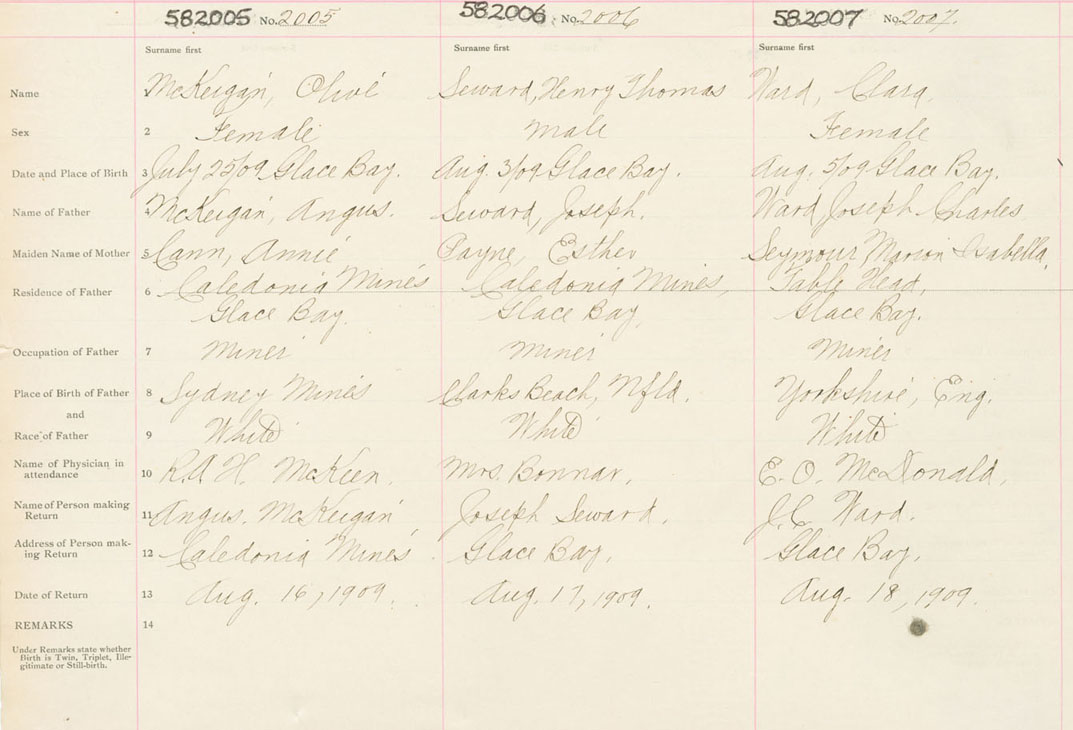 582005 No. 2005 582006 No. 2006 582007 No. 2007.
Surname first Surname first Surname first
Name 1 McKeigan, Olive Seward, Henry Thomas Ward, Clara.
Sex 2 Female Male Female
Date and Place of Birth 3 July 25/09 Glace Bay. Aug. 3/09 Glace Bay. Aug. 5/09 Glace Bay.
Name of Father McKeigan, Angus. Seward, Joseph. Ward Joseph Charles
Maiden Name of Mother 5 Cann, Annie Payne, Esther Seymour Marion Isabella.
Residence of Father 6 Caledonia Mines Caledonia Mines, Table Head,
Glace Bay. Glace Bay. Glace Bay.
Occupation of Father 7 Miner Miner Miner
Place of Birth of Father 8 Sydney Mines Clarks Beach, Nfld. Yorkshire, Eng.
and
Race of Father 9 White White White
Name of Physician in
attendance 10 R.A.H. McKeen. Mrs. Bonnar. E. O. McDonald,
Name of Person making
Return 11 Angus. McKeigan Joseph Seward. J.C. Ward.
Address of Person mak-
ing Return 12 Caledonia Mines. Glace Bay. Glace Bay.
Date of Return 13 Aug. 16, 1909. Aug. 17, 1909. Aug. 18, 1909.
REMARKS 14
Under Remarks state whether
Birth is Twin, Triplet, Ille-
gitimate or Still-birth.